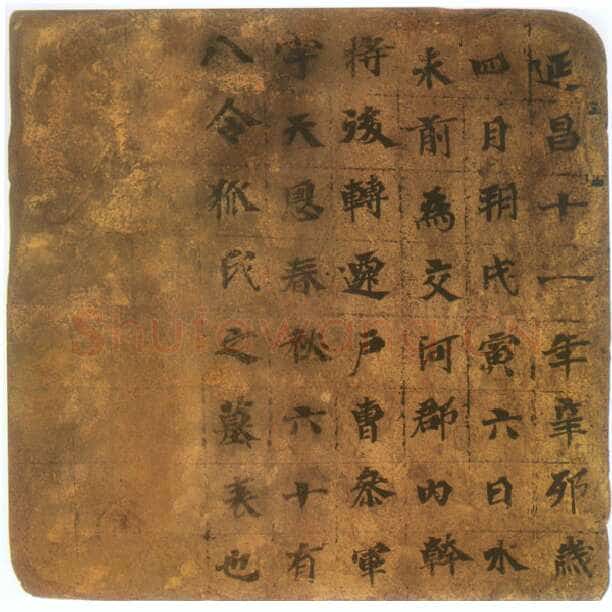 延昌十一年辛卯歲
四月朔戊寅六日水
未前為交河郡内幹
將後轉遷户曹叅軍
字天恩春秋六十有
八令狐氏之墓表也